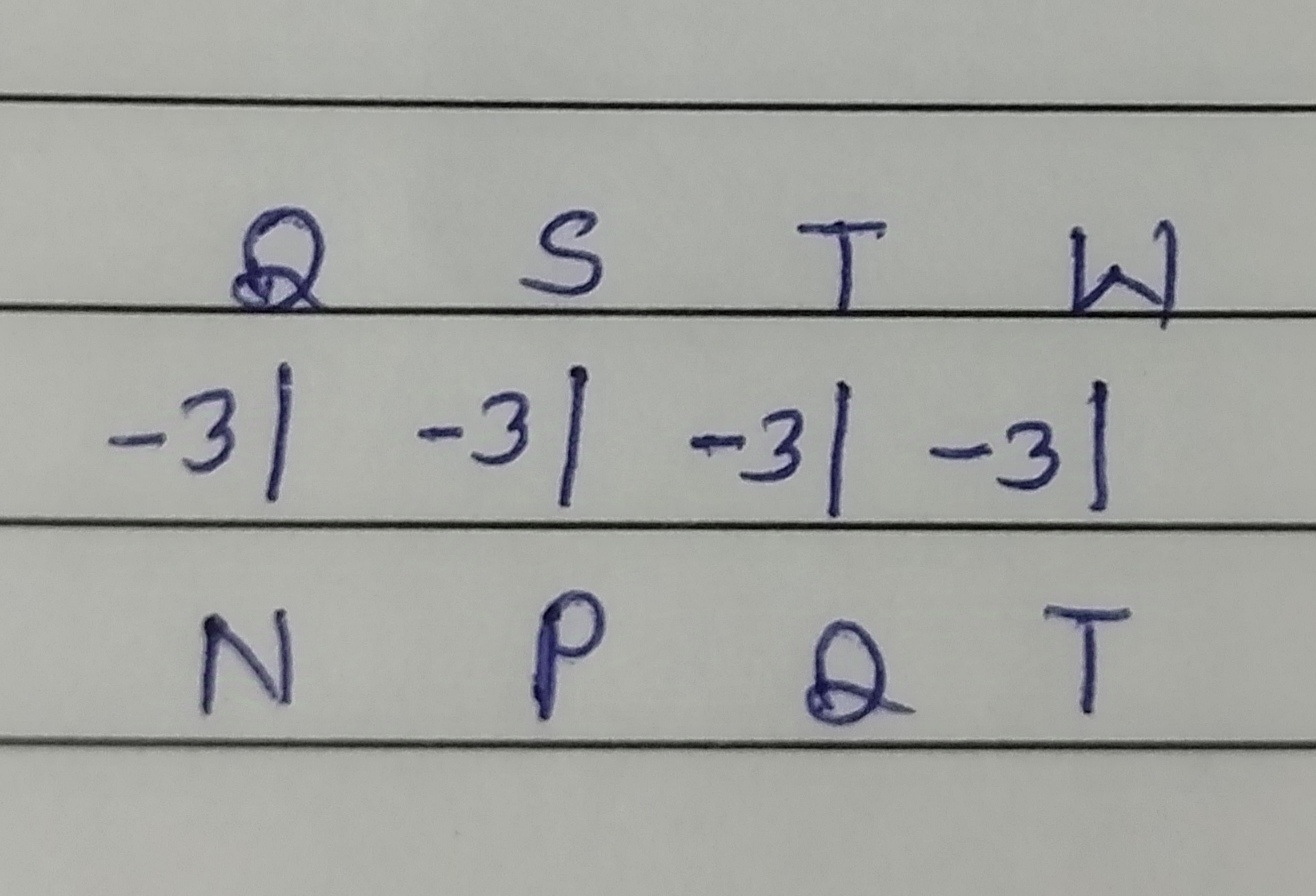 Q S T W
-3| -3| -3| -3|
N P Q T